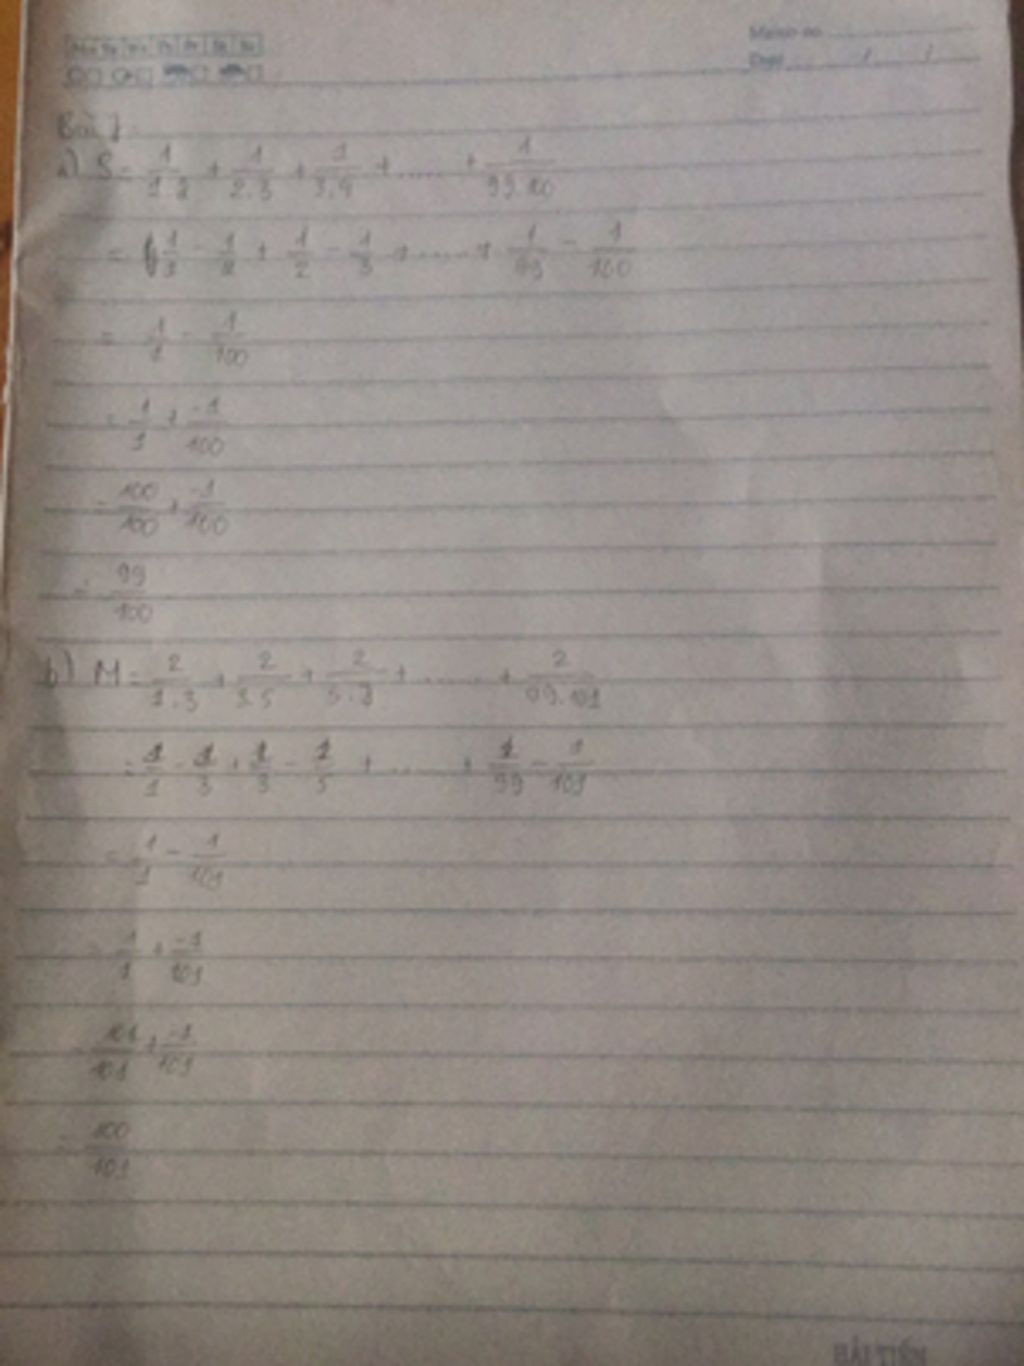 Bài 7
a) S = 1/1.2 + 1/2.3 + 1/3.4 + ..... + 1/99.100
= 1/1 - 1/2 + 1/2 - 1/3 + ...... + 1/99 - 1/100
= 1/1 - 1/100
= 1/1 + -1/100
= 100/100 + -1/100
= 99/100
b) M = 2/1.3 + 2/3.5 + 2/5.7 + ....... + 2/99.101
= 1/1 - 1/3 + 1/3 - 1/5 + ...... + 1/99 - 1/101
= 1/1 - 1/101
= 1/1 + -1/101
= 101/101 + -1/101
= 100/101
HẢI TIẾN